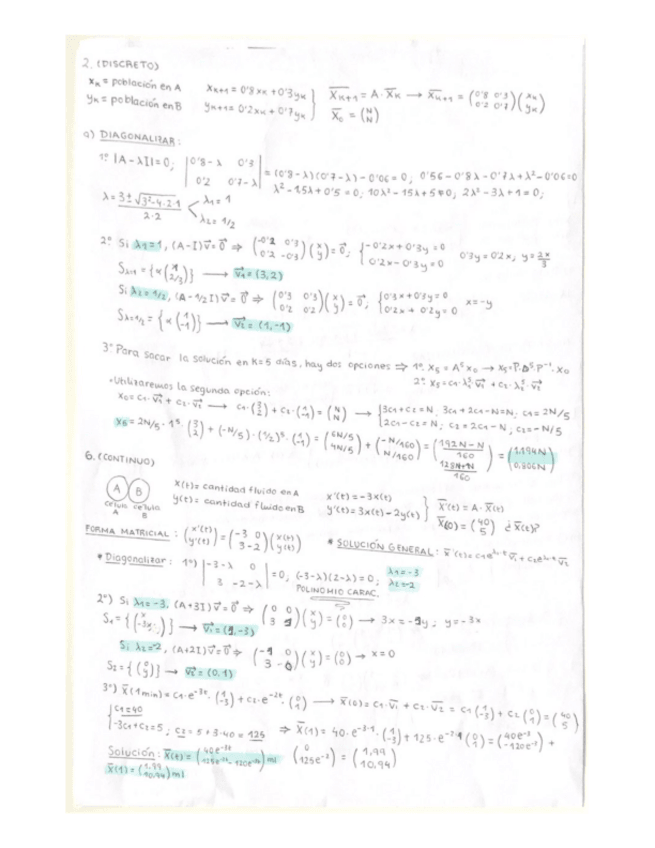 2. (DISCRETO)
xₖ = población en A
yₖ = población en B
xₖ₊₁ = 0'8xₖ + 0'3yₖ
yₖ₊₁ = 0'2xₖ + 0'7yₖ }
X̄ₖ₊₁ = A · X̄ₖ → X̄ₖ₊₁ = (0'8 0'3 / 0'2 0'7)(xₖ / yₖ)
X̄₀ = (N / N)
a) DIAGONALIZAR:
1º |A-λI|=0; |0'8-λ 0'3 / 0'2 0'7-λ| = (0'8-λ)(0'7-λ)-0'06=0; 0'56-0'8λ-0'7λ+λ²-0'06=0
λ²-1,5λ+0'5=0; 10λ²-15λ+5=0; 2λ²-3λ+1=0;
λ = 3±√3²-4·2·1 / 2·2 < λ₁=1
λ₂=1/2
2º Si λ₁=1, (A-I)v⃗=0⃗ ⇒ (-0'2 0'3 / 0'2 -0'3)(x / y)=0⃗; { -0'2x+0'3y=0 / 0'2x-0'3y=0 0'3y=0'2x; y=2x/3
Sλ=1 = {α(1 / 2/3)} → v⃗₁=(3,2)
Si λ₂=1/2, (A-1/2 I)v⃗=0⃗ ⇒ (0'3 0'3 / 0'2 0'2)(x / y)=0⃗; {0'3x+0'3y=0 / 0'2x+0'2y=0 x=-y
Sλ=1/2 = {α(1 / -1)} → v⃗₂=(1,-1)
3º Para sacar la solución en K=5 días, hay dos opciones ⇒ 1º. X₅=A⁵x₀ → x₅=P·D⁵·P⁻¹·X₀
2º. X₅=c₁·λ₁⁵·v⃗₁+c₂·λ₂⁵·v⃗₂
•Utilizaremos la segunda opción:
x₀=c₁·v⃗₁+c₂·v⃗₂ → c₁·(3 / 2)+c₂·(1 / -1)=(N / N) → {3c₁+c₂=N; 3c₁+2c₁-N=N; c₁=2N/5
2c₁-c₂=N; c₂=2c₁-N; c₂=-N/5
X₅=2N/5·1⁵·(3 / 2)+(-N/5)·(1/2)⁵·(1 / -1)=(6N/5 / 4N/5)+(-N/160 / N/160)=(192N-N/160 / 128N+N/160)=(1.194N / 0,806N)
6. (CONTINUO)
A B
célula A célula B
x(t)= cantidad fluido en A
y(t)= cantidad fluido en B
x'(t)=-3x(t)
y'(t)=3x(t)-2y(t) }
X̄'(t)=A·X̄(t)
X̄(0)=(40 / 5) ¿X̄(t)?
FORMA MATRICIAL: (x'(t) / y'(t))=(-3 0 / 3 -2)(x(t) / y(t))
* SOLUCIÓN GENERAL: X̄'(t)=c₁e^λ₁·t v⃗₁+c₂e^λ₂·t v⃗₂
* Diagonalizar: 1º) |-3-λ 0 / 3 -2-λ|=0; (-3-λ)(2-λ)=0; λ₁=-3
λ₂=-2
POLINOMIO CARAC.
2º) Si λ₁=-3, (A+3I)v⃗=0⃗ ⇒ (0 0 / 3 1)(x / y)=(0 / 0) → 3x=-1y; y=-3x
S₁={(x / -3x)} → v⃗₁=(1,-3)
Si λ₂=-2, (A+2I)v⃗=0⃗ ⇒ (-1 0 / 3 0)(x / y)=(0 / 0) → x=0
S₂={(0 / y)} → v⃗₂=(0,1)
3º) X̄(1min)=c₁·e^-3t·(1 / -3)+c₂·e^-2t·(0 / 1) → X̄(0)=c₁·v⃗₁+c₂·v⃗₂=c₁(1 / -3)+c₂(0 / 1)=(40 / 5)
{c₁=40
-3c₁+c₂=5; c₂=5+3·40=125 ⇒ X̄(1)=40·e^-3·1·(1 / -3)+125·e^-2·1(0 / 1)=(40e⁻³ / -120e⁻³)+
(0 / 125e⁻²)=(1,99 / 10,94)
Solución: X̄(t)=(40e^-3t / 125e^-2t-120e^-3t)ml
X̄(1)=(1,99 / 10,94)ml